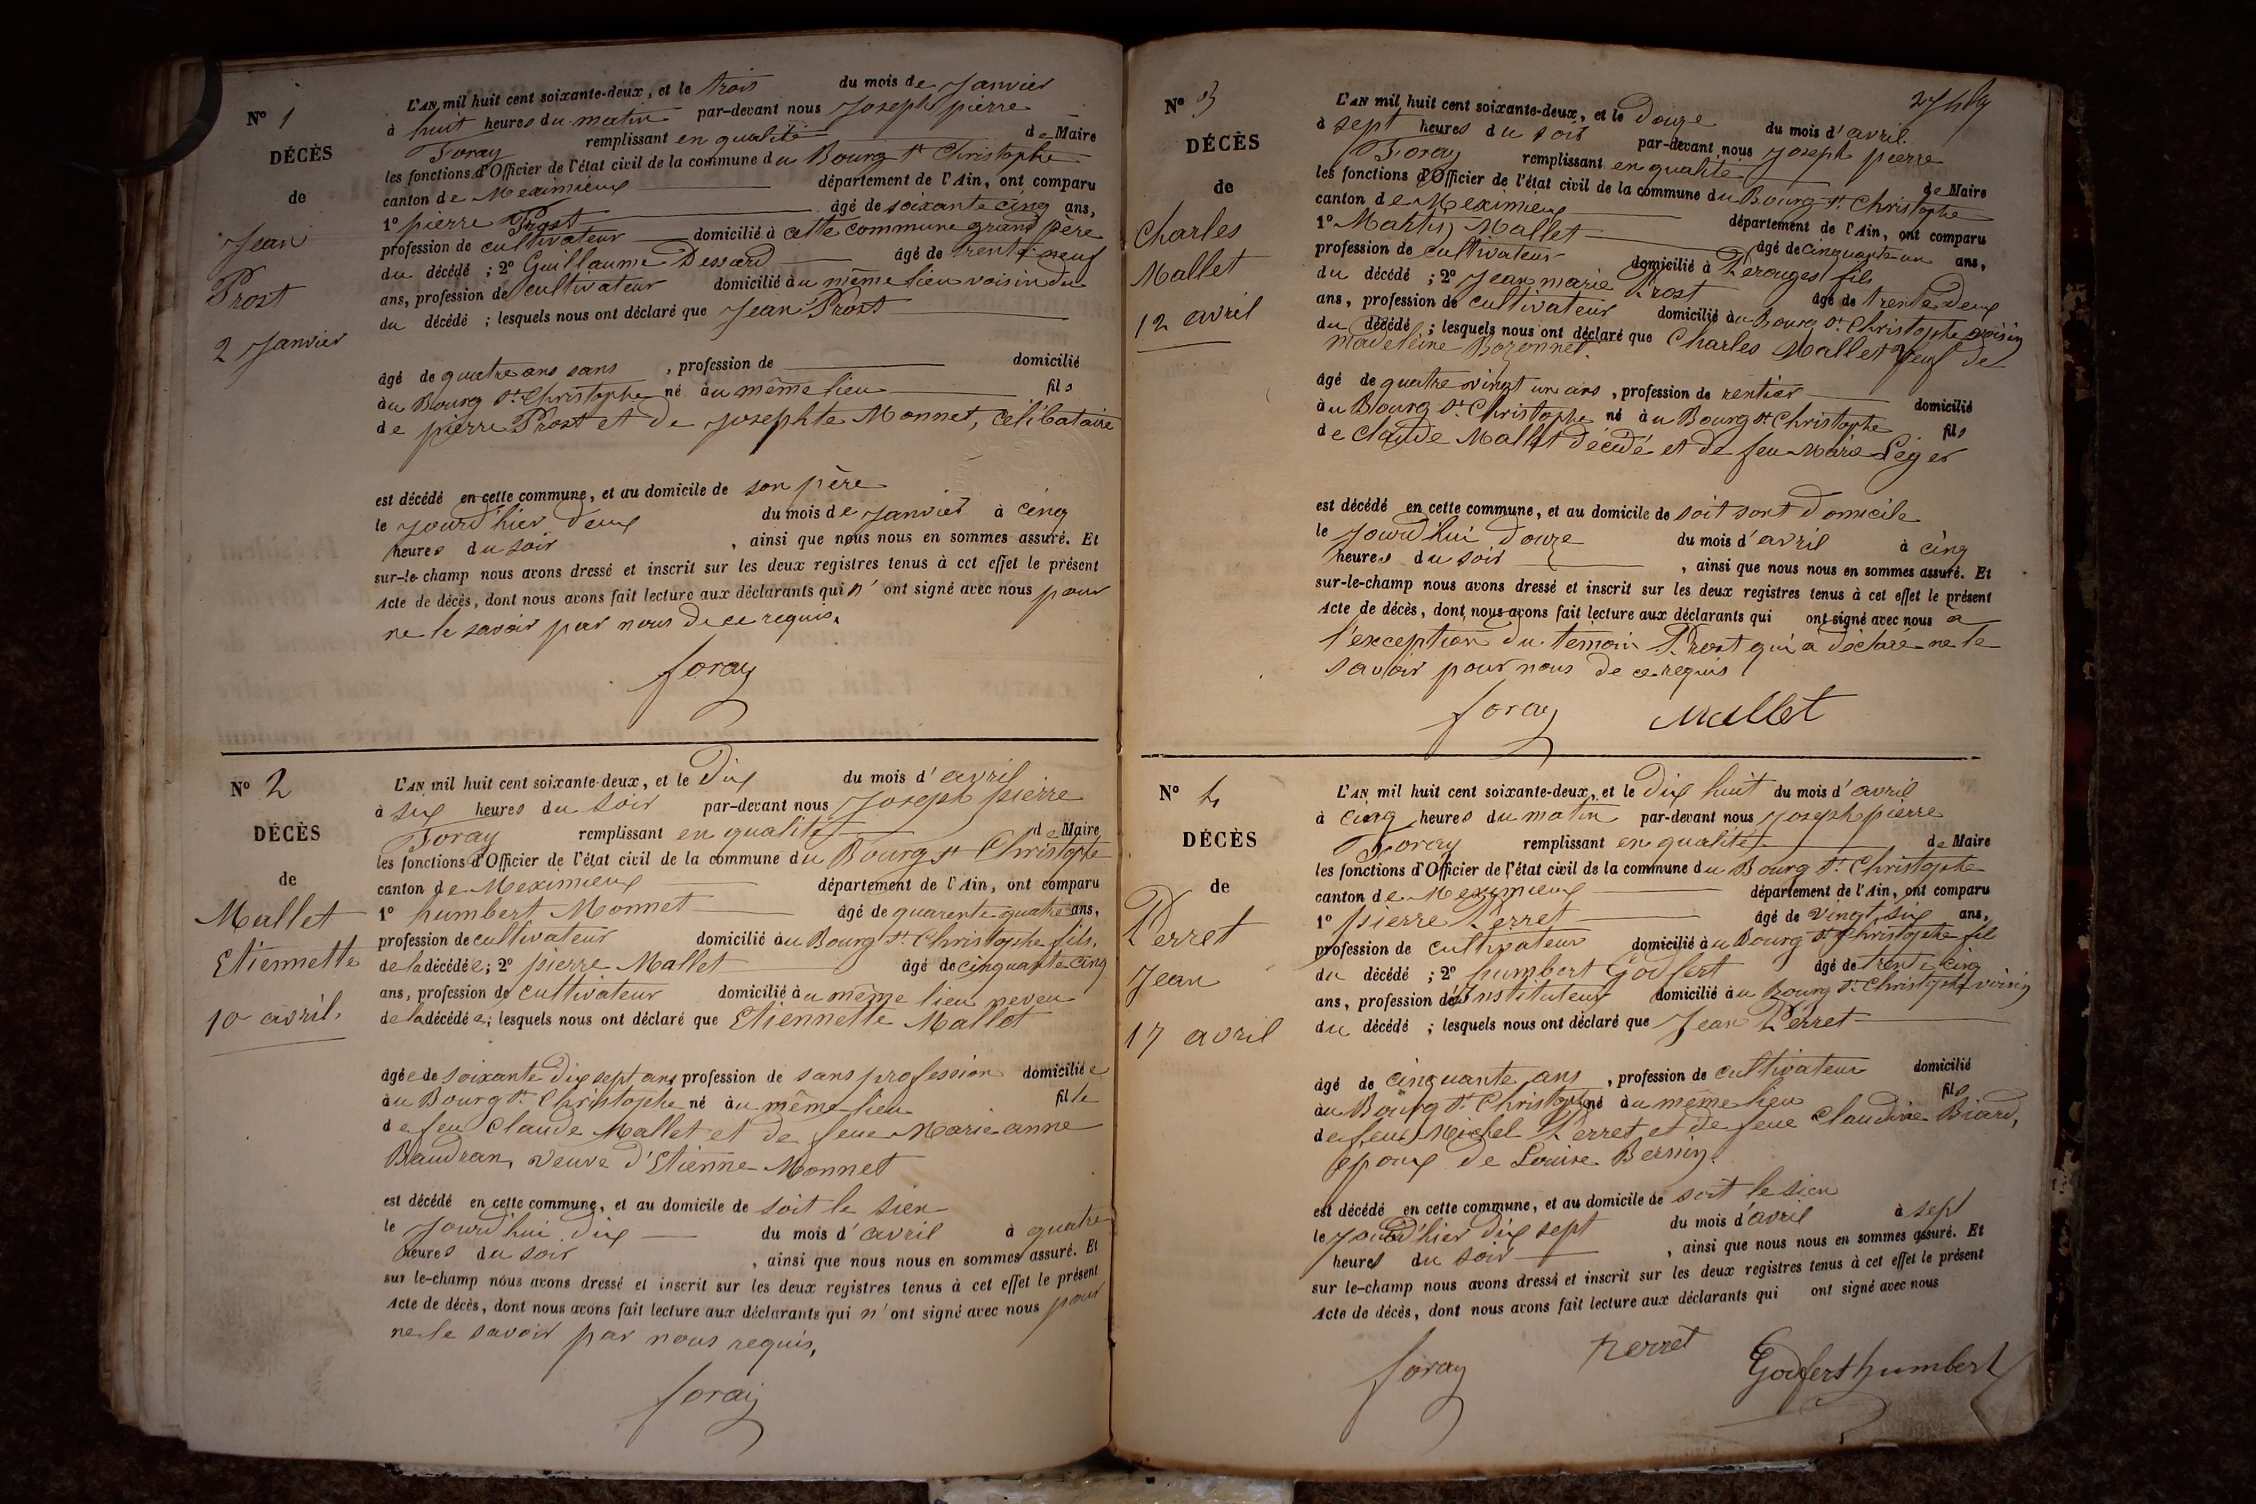 N° 1
DÉCÈS
de
Jean
Prost
2 Janvier
L'AN mil huit cent soixante-deux, et le trois du mois de Janvier
à huit heures du matin par-devant nous Joseph pierre
Foray remplissant en qualité de Maire
les fonctions d'Officier de l'état civil de la commune du Bourg St Christophe
canton de Meximieux département de l'Ain, ont comparu
1° pierre Prost âgé de soixante cinq ans,
profession de cultivateur domicilié à cette commune grand père
du décédé ; 2° Guillaume âgé de trente neuf
ans, profession de cultivateur domicilié au même lieu voisin du
du décédé ; lesquels nous ont déclaré que Jean Prost
âgé de quatre ans sans , profession de domicilié
au Bourg St Christophe né au même lieu fils
de pierre Prost et de Josephte Monnet, célibataire
est décédé en cette commune, et au domicile de son père
le jourd'hier deux du mois de Janvier à cinq
heures du soir , ainsi que nous nous en sommes assuré. Et
sur-le-champ nous avons dressé et inscrit sur les deux registres tenus à cet effet le présent
Acte de décès, dont nous avons fait lecture aux déclarants qui n'ont signé avec nous pour
ne le savoir par nous de ce requis.
foray
N° 2
DÉCÈS
de
Mallet
Etiennette
10 avril.
L'AN mil huit cent soixante-deux, et le Dix du mois d'avril
à six heures du soir par-devant nous Joseph pierre
Foray remplissant en qualité de Maire
les fonctions d'Officier de l'état civil de la commune du Bourg St Christophe
canton de Meximieux département de l'Ain, ont comparu
1° humbert Monnet âgé de quarente quatre ans,
profession de cultivateur domicilié au Bourg St Christophe fils,
de la décédée ; 2° pierre Mallet âgé de cinquante cinq
ans, profession de cultivateur domicilié au même lieu neveu
de la décédée ; lesquels nous ont déclaré que Etiennette Mallet
âgée de soixante dix sept ans profession de sans profession domiciliée
au Bourg St Christophe né au même lieu fille
de feu Claude Mallet et de feue Marie anne
Baudran, veuve d'Etienne Monnet
est décédé en cette commune, et au domicile de soit le sien
le jourd'hui dix du mois d'avril à quatre
heures du soir , ainsi que nous nous en sommes assuré. Et
sur le-champ nous avons dressé et inscrit sur les deux registres tenus à cet effet le présent
Acte de décès, dont nous avons fait lecture aux déclarants qui n'ont signé avec nous pour
ne le savoir par nous requis,
foray
N° 3
DÉCÈS
de
Charles
Mallet
12 avril
L'AN mil huit cent soixante-deux, et le Douze du mois d'avril.
à sept heures du soir par-devant nous Joseph pierre
Foray remplissant en qualité de Maire
les fonctions d'Officier de l'état civil de la commune du Bourg St Christophe
canton de Meximieux département de l'Ain, ont comparu
1° Martin Mallet âgé de cinquante un ans,
profession de cultivateur domicilié à Perouges fils
du décédé ; 2° Jean marie Prost âgé de trente deux
ans, profession de cultivateur domicilié au Bourg St Christophe voisin
du décédé ; lesquels nous ont déclaré que Charles Mallet Veuf de
madeleine Bozonnet.
âgé de quatre vingt un ans , profession de rentier domicilié
au Bourg St Christophe né au Bourg St Christophe fils
de Claude Mallet décédé et de feu Marie Léger
est décédé en cette commune, et au domicile de soit sont domicile
le jourd'hui douze du mois d'avril à cinq
heures du soir , ainsi que nous nous en sommes assuré. Et
sur-le-champ nous avons dressé et inscrit sur les deux registres tenus à cet effet le présent
Acte de décès, dont nous avons fait lecture aux déclarants qui ont signé avec nous a
l'exception du témoin Prost qui a déclaré ne le
savoir pour nous de ce requis
foray Mallet
N° 4
DÉCÈS
de
Perret
Jean
17 avril
L'AN mil huit cent soixante-deux, et le Dix huit du mois d'avril
à cinq heures du matin par-devant nous Joseph pierre
Foray remplissant en qualité de Maire
les fonctions d'Officier de l'état civil de la commune du Bourg St Christophe
canton de Meximieux département de l'Ain, ont comparu
1° pierre Perret âgé de vingt six ans,
profession de cultivateur domicilié au Bourg St Christophe fil
du décédé ; 2° humbert Godfert âgé de trente cinq
ans, profession de Instituteur domicilié au Bourg St Christophe voisin
du décédé ; lesquels nous ont déclaré que Jean Perret
âgé de cinquante ans , profession de cultivateur domicilié
au Bourg St Christophe né au même lieu fils
de feu Michel Perret et de feue Claudine Biard,
époux de Louise Bernin.
est décédé en cette commune, et au domicile de soit le sien
le jourd'hier dix sept du mois d'avril à sept
heures du soir , ainsi que nous nous en sommes assuré. Et
sur le-champ nous avons dressé et inscrit sur les deux registres tenus à cet effet le présent
Acte de décès, dont nous avons fait lecture aux déclarants qui ont signé avec nous
foray perret Godfert humbert